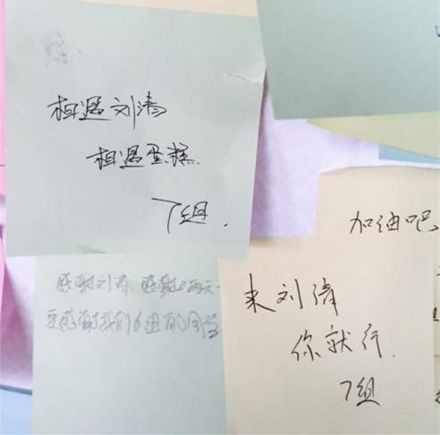 相遇刘清
相遇蛋糕.
7组.
加油吧
来刘清
你就行.
7组
感谢刘清,感谢
更感谢我们6组的同学